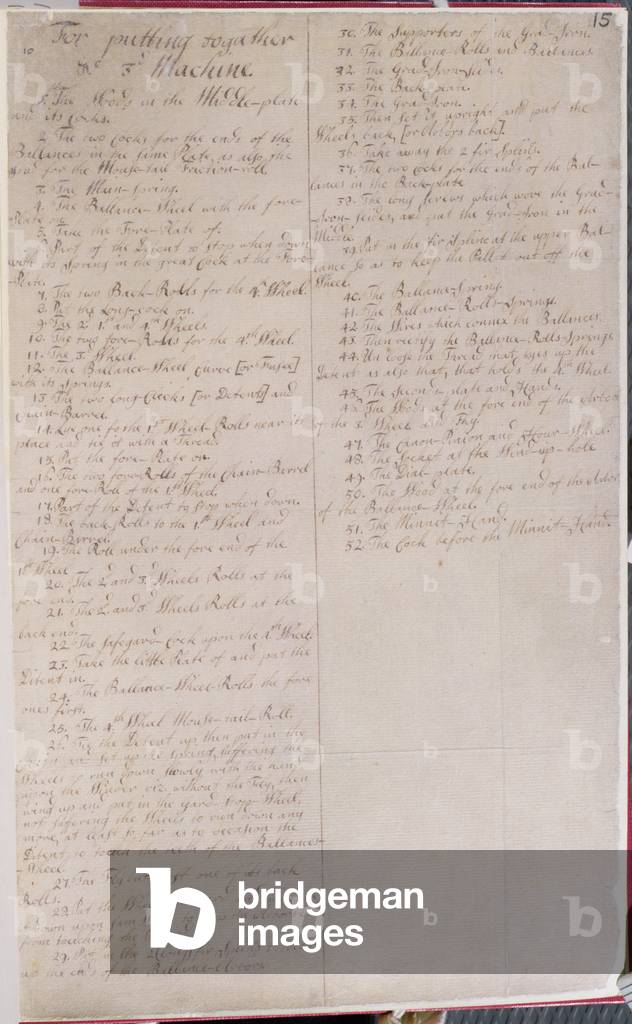 15
10
For putting together
the 3d Machine.
1. The Woods in the Middle-plate
and its Cocks.
2. The two Cocks for the ends of the
Ballances in the same Plate, as also the
for the Mouse-tail Friction-roll
3. The Main-Spring.
4. The Ballance-Wheel with the fore-
Plate on.
5. Take the Fore-Plate of.
6. Part of the Detent to Stop when down
with its Spring in the great Cock at the Fore-
Plate.
7. The two Back-Rolls for the 4th Wheel.
8. Put the Long-Cock on.
9. The 2d 1st and 4th Wheels.
10. The two fore-Rolls for the 4th Wheel.
11. The 3d Wheel.
12. The Ballance-Wheel [or Fusee]
with its Springs.
13. The two long Cocks [or Detents] and
Chain-Barrel.
14. one fo the 1st Wheel-Rolls near its
place and tie it with a Thread.
15. Put the fore-Plate on.
16. The two fore-Rolls of the Chain-Berrel
and one fore-Roll of the 1st Wheel.
17. Part of the Detent to Stop when down.
18. The back Rolls to the 1st Wheel and
Chain-Berrel.
19. The Roll under the fore end of the
1st Wheel.
20. The 2d and 3d Wheels Rolls at the
fore end.
21. The 2d and 3d Wheels Rolls at the
back end.
22. The Safegard-Cock upon the 4th Wheel.
23. Take the little Plate of and put the
Detent in.
24. The Ballance-Wheel-Rolls the fore
ones first.
25. The 4th Wheel Mouse-tail-Roll.
26. Tie the Detent up then put in the
set up the Spring, suffering the
Wheels to run down slowly with the
upon the viz. without the Fly, then
wind up and put in the Gard-Stop-Wheel,
not suffering the Wheels to run down any
more, at least so far as to occasion the
Detent to touch the teeth of the Ballance-
-Wheel.
27. The Fly one of its back
Rolls.
28. Put the
down upon
from touching the
29. Put in the
up the ends of the Ballance
30. The Supporters of the Grad-Iron.
31. The Ballance-Rolls and Ballances.
32. The Grad-Iron-Slider.
33. The Back-plate.
34. The Grad-Iron.
35. Then set it upright and put the
Wheels back, back].
36. Take away the 2 fir Splints.
37. The two Cocks for the ends of the Bal-
lances in the Back-plate
38. The long Screws which move the Grad-
-Iron-Slides, and put the Grad-Iron in the
Middle.
39. Put in the fir Spline at the upper Bal-
lance so as to keep the Pallet out off the
Wheel.
40. The Ballance-Spring.
41. The Ballance-Rolls-Springs.
42. The Wires which connex the Ballances.
43. Then rectify the Ballance-Rolls Springs.
44. Un loose the Tread that tyes up the
Detent as also that, that holds the 4th Wheel.
45. The Second-plate and Hand.
46. The Woods at the fore end of the Arbor
of the 3d Wheel and Fly.
47. The Canon-Pinion and Hour-Wheel.
48. The Socket at the Wind-up-hole
49. The Dial-plate.
50. The Wood at the fore end of the Arbor
of the Ballance-Wheel.
51. The Minnit-Hand.
52. The Cock before the Minnit-Hand.
bridgeman
images